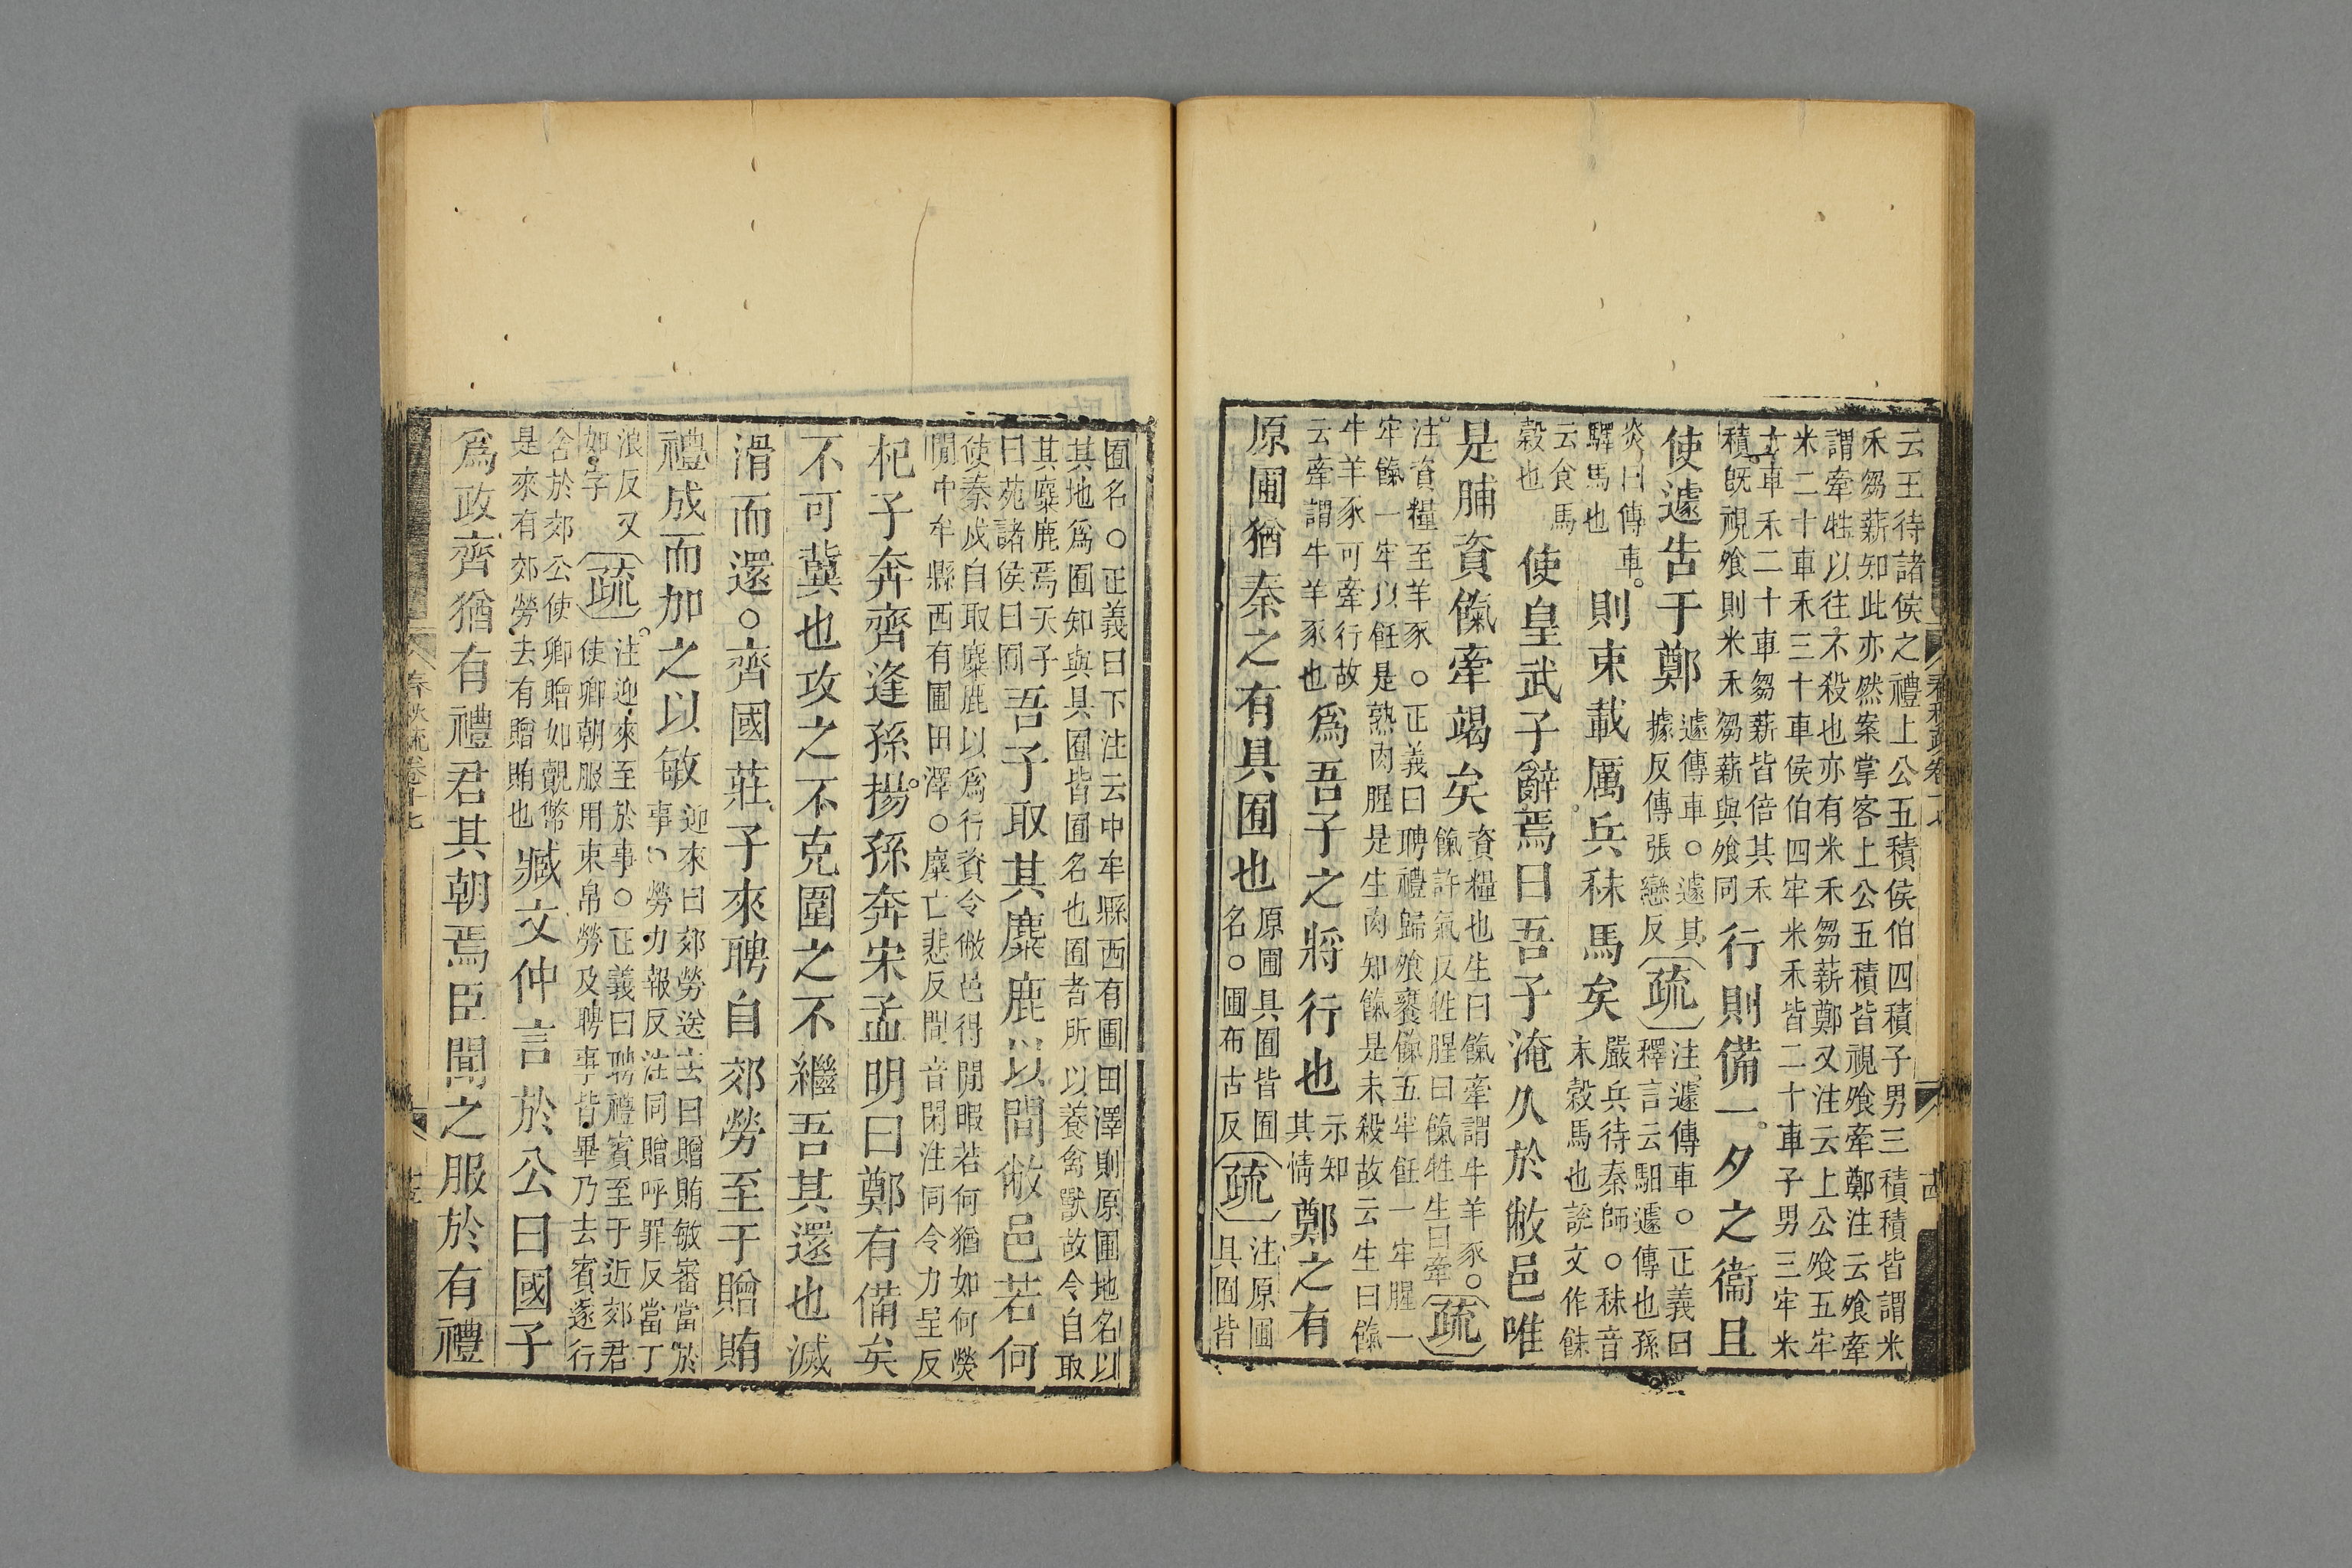 云王待諸侯之禮上公五積侯伯四積子男三積積皆謂米
禾芻薪知此亦然案掌客上公五積皆視飧牽鄭注云飧牽
謂牽牲以往不殺也亦有米禾芻薪鄭又注云上公飧五牢
米二十車禾三十車侯伯四牢米禾皆二十車子男三牢米
十車禾二十車芻薪皆倍其禾
積旣視飧則米禾芻薪與飧同
行則備一夕之衞且
使遽告于鄭
遽傳車○遽其
據反傳張戀反
疏
注遽傳車○正義曰
釋言云馹遽傳也孫
炎曰傳車
驛馬也
則束載厲兵秣馬矣
嚴兵待秦師○秣音
末穀馬也說文作䬴
云食馬
穀也
使皇武子辭焉曰吾子淹久於敝邑唯
是脯資餼牽竭矣
資糧也生曰餼牽謂牛羊豕○
餼許氣反牲腥曰餼牲生曰牽
疏
注資糧至羊豕○正義曰聘禮歸飧饔餼五牢飪一牢腥一
牢餼一牢以飪是熟肉腥是生肉知餼是未殺故云生曰餼
牛羊豕可牽行故
云牽謂牛羊豕也
爲吾子之將行也
示知
其情
鄭之有
原圃猶秦之有具囿也
原圃具囿皆囿
名○圃布古反
疏
注原圃
具囿皆
囿名○正義曰下注云中牟縣西有圃田澤則原圃地名以
其地爲囿知與具囿皆囿名也囿者所以養禽獸故令自取
其麋鹿焉天子
曰苑諸侯曰囿
吾子取其麋鹿以閒敝邑若何
使秦戍自取麋鹿以爲行資令敝邑得閒暇若何猶如何熒
陽中牟縣西有圃田澤○麋亡悲反閒音閑注同令力呈反
杞子奔齊逢孫揚孫奔宋孟明曰鄭有備矣
不可冀也攻之不克圍之不繼吾其還也滅
滑而還○齊國莊子來聘自郊勞至于贈賄
禮成而加之以敏
迎來曰郊勞送去曰贈賄敏審當於
事○勞力報反注同贈呼罪反當丁
浪反又
如字
疏
注迎來至於事○正義曰聘禮賓至于近郊君
使卿朝服用束帛勞及聘事皆畢乃去賓遂行
舍於郊公使卿贈如覿幣
是來有郊勞去有贈賄也
臧文仲言於公曰國子
爲政齊猶有禮君其朝焉臣聞之服於有禮
春秋疏卷十七